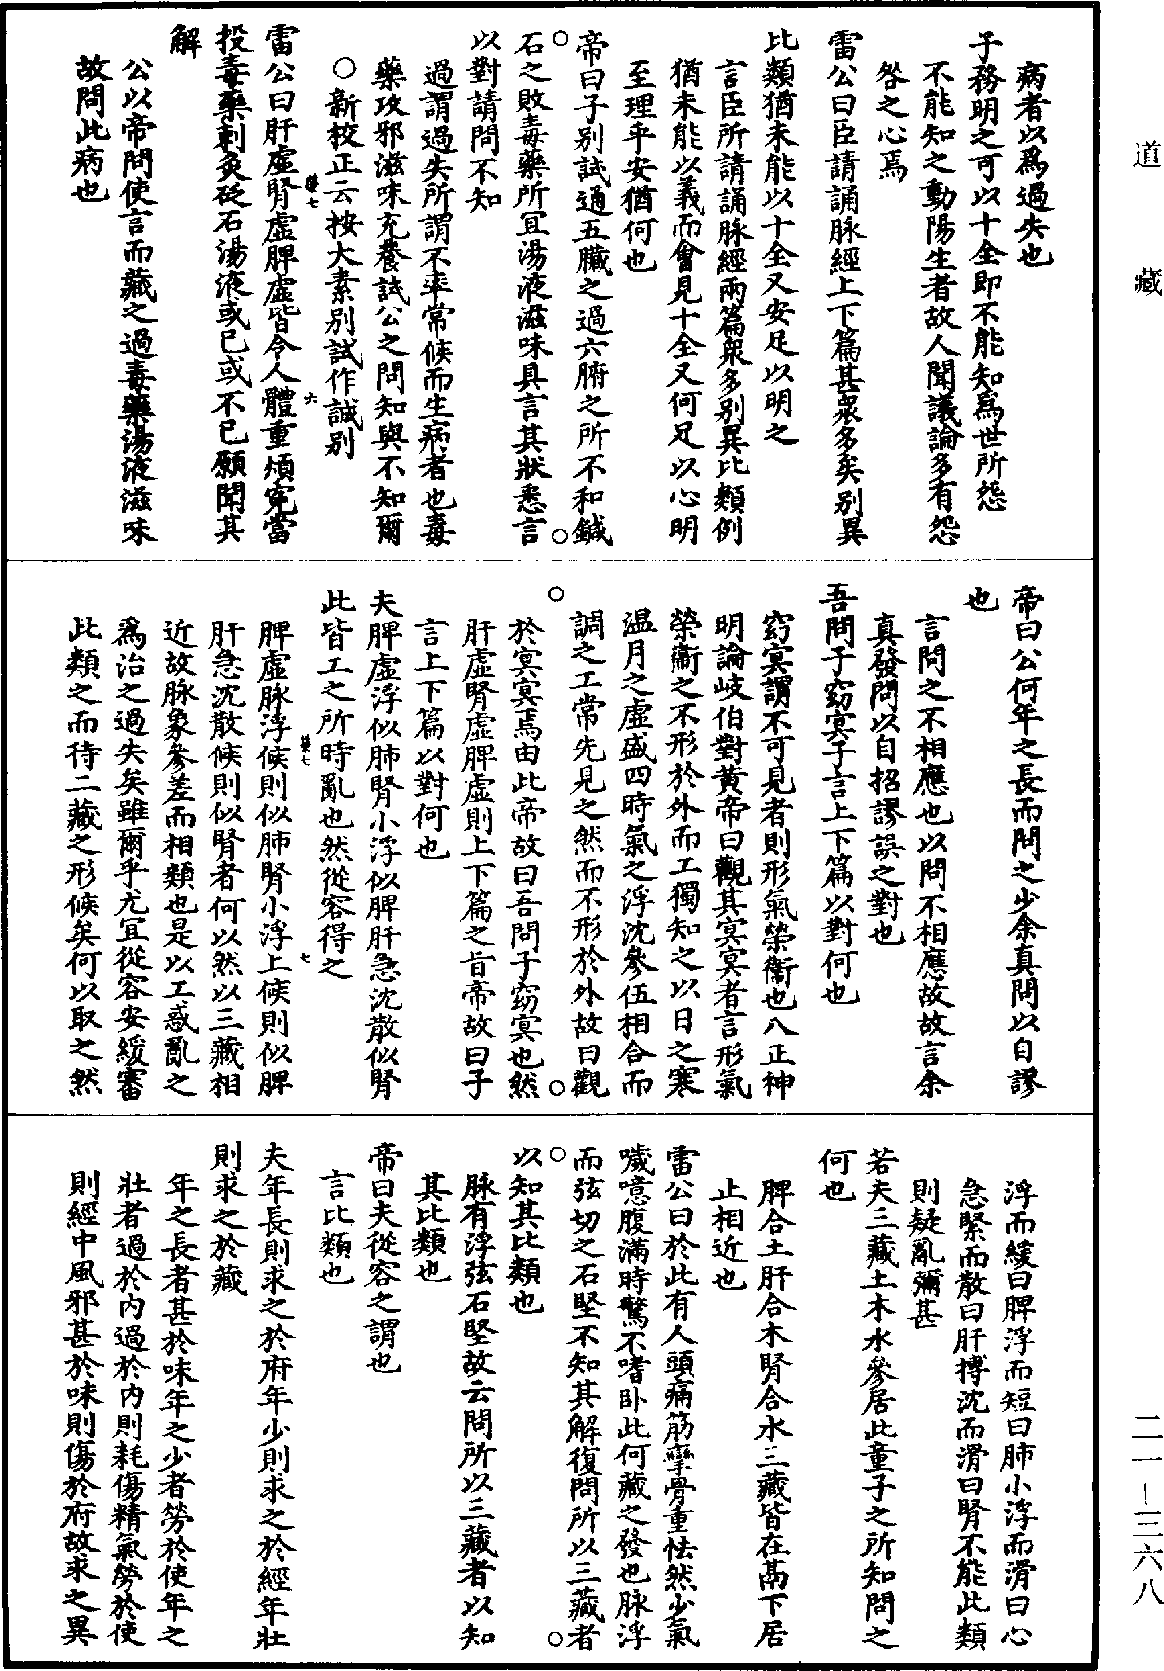 道藏
病者以爲過失也
子務明之可以十全即不能知爲世所怨
不能知之動陽生者故人聞議論多有怨
咎之心焉
雷公曰臣請誦脉經上下篇甚衆多矣别異
比類猶未能以十全又安足以明之
言臣所請誦脉經兩篇衆多别異比類例
猶未能以義而會見十全又何足以心明
至理乎安猶何也
帝曰子别試通五臟之過六腑之所不和鍼
石之敗毒藥所宜湯液滋味具言其狀悉言
以對請問不知
過謂過失所謂不率常候而生病者也毒
藥攻邪滋味充養試公之問知與不知爾
○新校正云按太素别試作誠别
雷公曰肝虛腎虛脾虛皆令人體重煩寃當
投毒藥刺灸砭石湯液或已或不已願聞其
解
公以帝問使言而藏之過毒藥湯液滋味
故問此病也
帝曰公何年之長而問之少余真問以自謬
也
言問之不相應也以問不相應故故言余
真發問以自招謬誤之對也
吾問子窈冥子言上下篇以對何也
窈冥謂不可見者則形氣榮衞也八正神
明論岐伯對黃帝曰觀其冥冥者言形氣
榮衞之不形於外而工獨知之以日之寒
温月之虛盛四時氣之浮沈參伍相合而
調之工常先見之然而不形於外故曰觀
於冥冥焉由此帝故曰吾問子窈冥也然
肝虛腎虛脾虛則上下篇之旨帝故曰子
言上下篇以對何也
夫脾虛浮似肺腎小浮似脾肝急沈散似腎
此皆工之所時亂也然從容得之
脾虛脉浮候則似肺腎小浮上候則似脾
肝急沈散候則似腎者何以然以三藏相
近故脉象參差而相類也是以工惑亂之
爲治之過失矣雖爾乎尤宜從容安緩審
此類之而待二藏之形候矣何以取之然
浮而緩曰脾浮而短曰肺小浮而滑曰心
急緊而散曰肝搏沈而滑曰腎不能此類
則疑亂彌甚
若夫三藏土木水參居此童子之所知問之
何也
脾合土肝合木腎合水三藏皆在鬲下居
止相近也
雷公曰於此有人頭痛筋攣骨重怯然少氣
噦噫腹滿時驚不嗜卧此何藏之發也脉浮
而弦切之石堅不知其解復問所以三藏者
以知其比類也
脉有浮弦石堅故云問所以三藏者以知
其比類也
帝曰夫從容之謂也
言比類也
夫年長則求之於府年少則求之於經年壯
則求之於藏
年之長者甚於味年之少者勞於使年之
壯者過於内過於内則耗傷精氣勞於使
則經中風邪甚於味則傷於府故求之異
二一—三六八